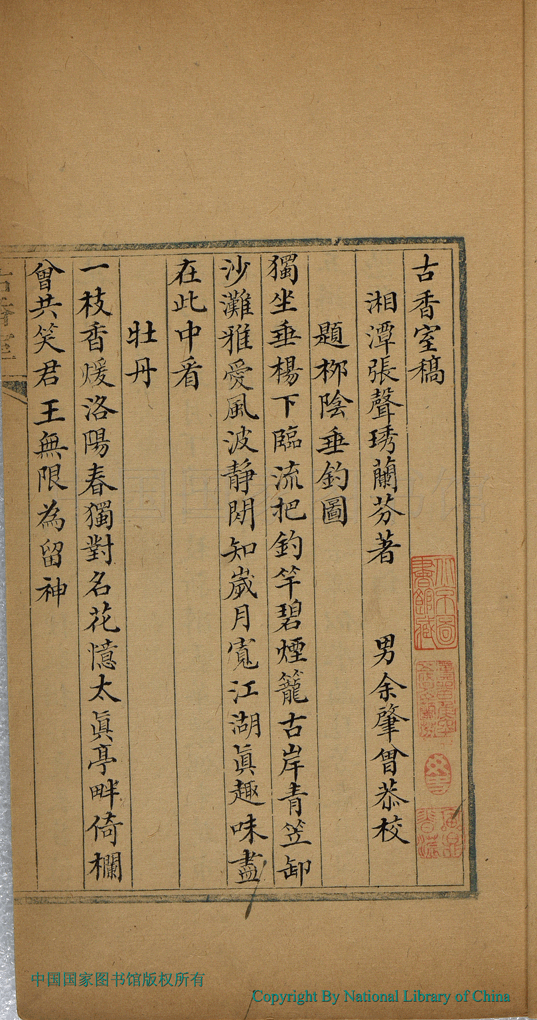 古香室稿
湘潭張聲琇蘭芬著 男余肇曾恭校
題柳陰垂釣圖
獨坐垂楊下臨流把釣竿碧煙籠古岸青笠卸
沙灘雅愛風波静閒知嵗月寬江湖眞趣味盡
在此中看
牡丹
一枝香煖洛陽春獨對名花憶太眞亭畔倚欄
曾共笑君王無限為留神
中国国家图书馆版权所有
Copyright By National Library of China